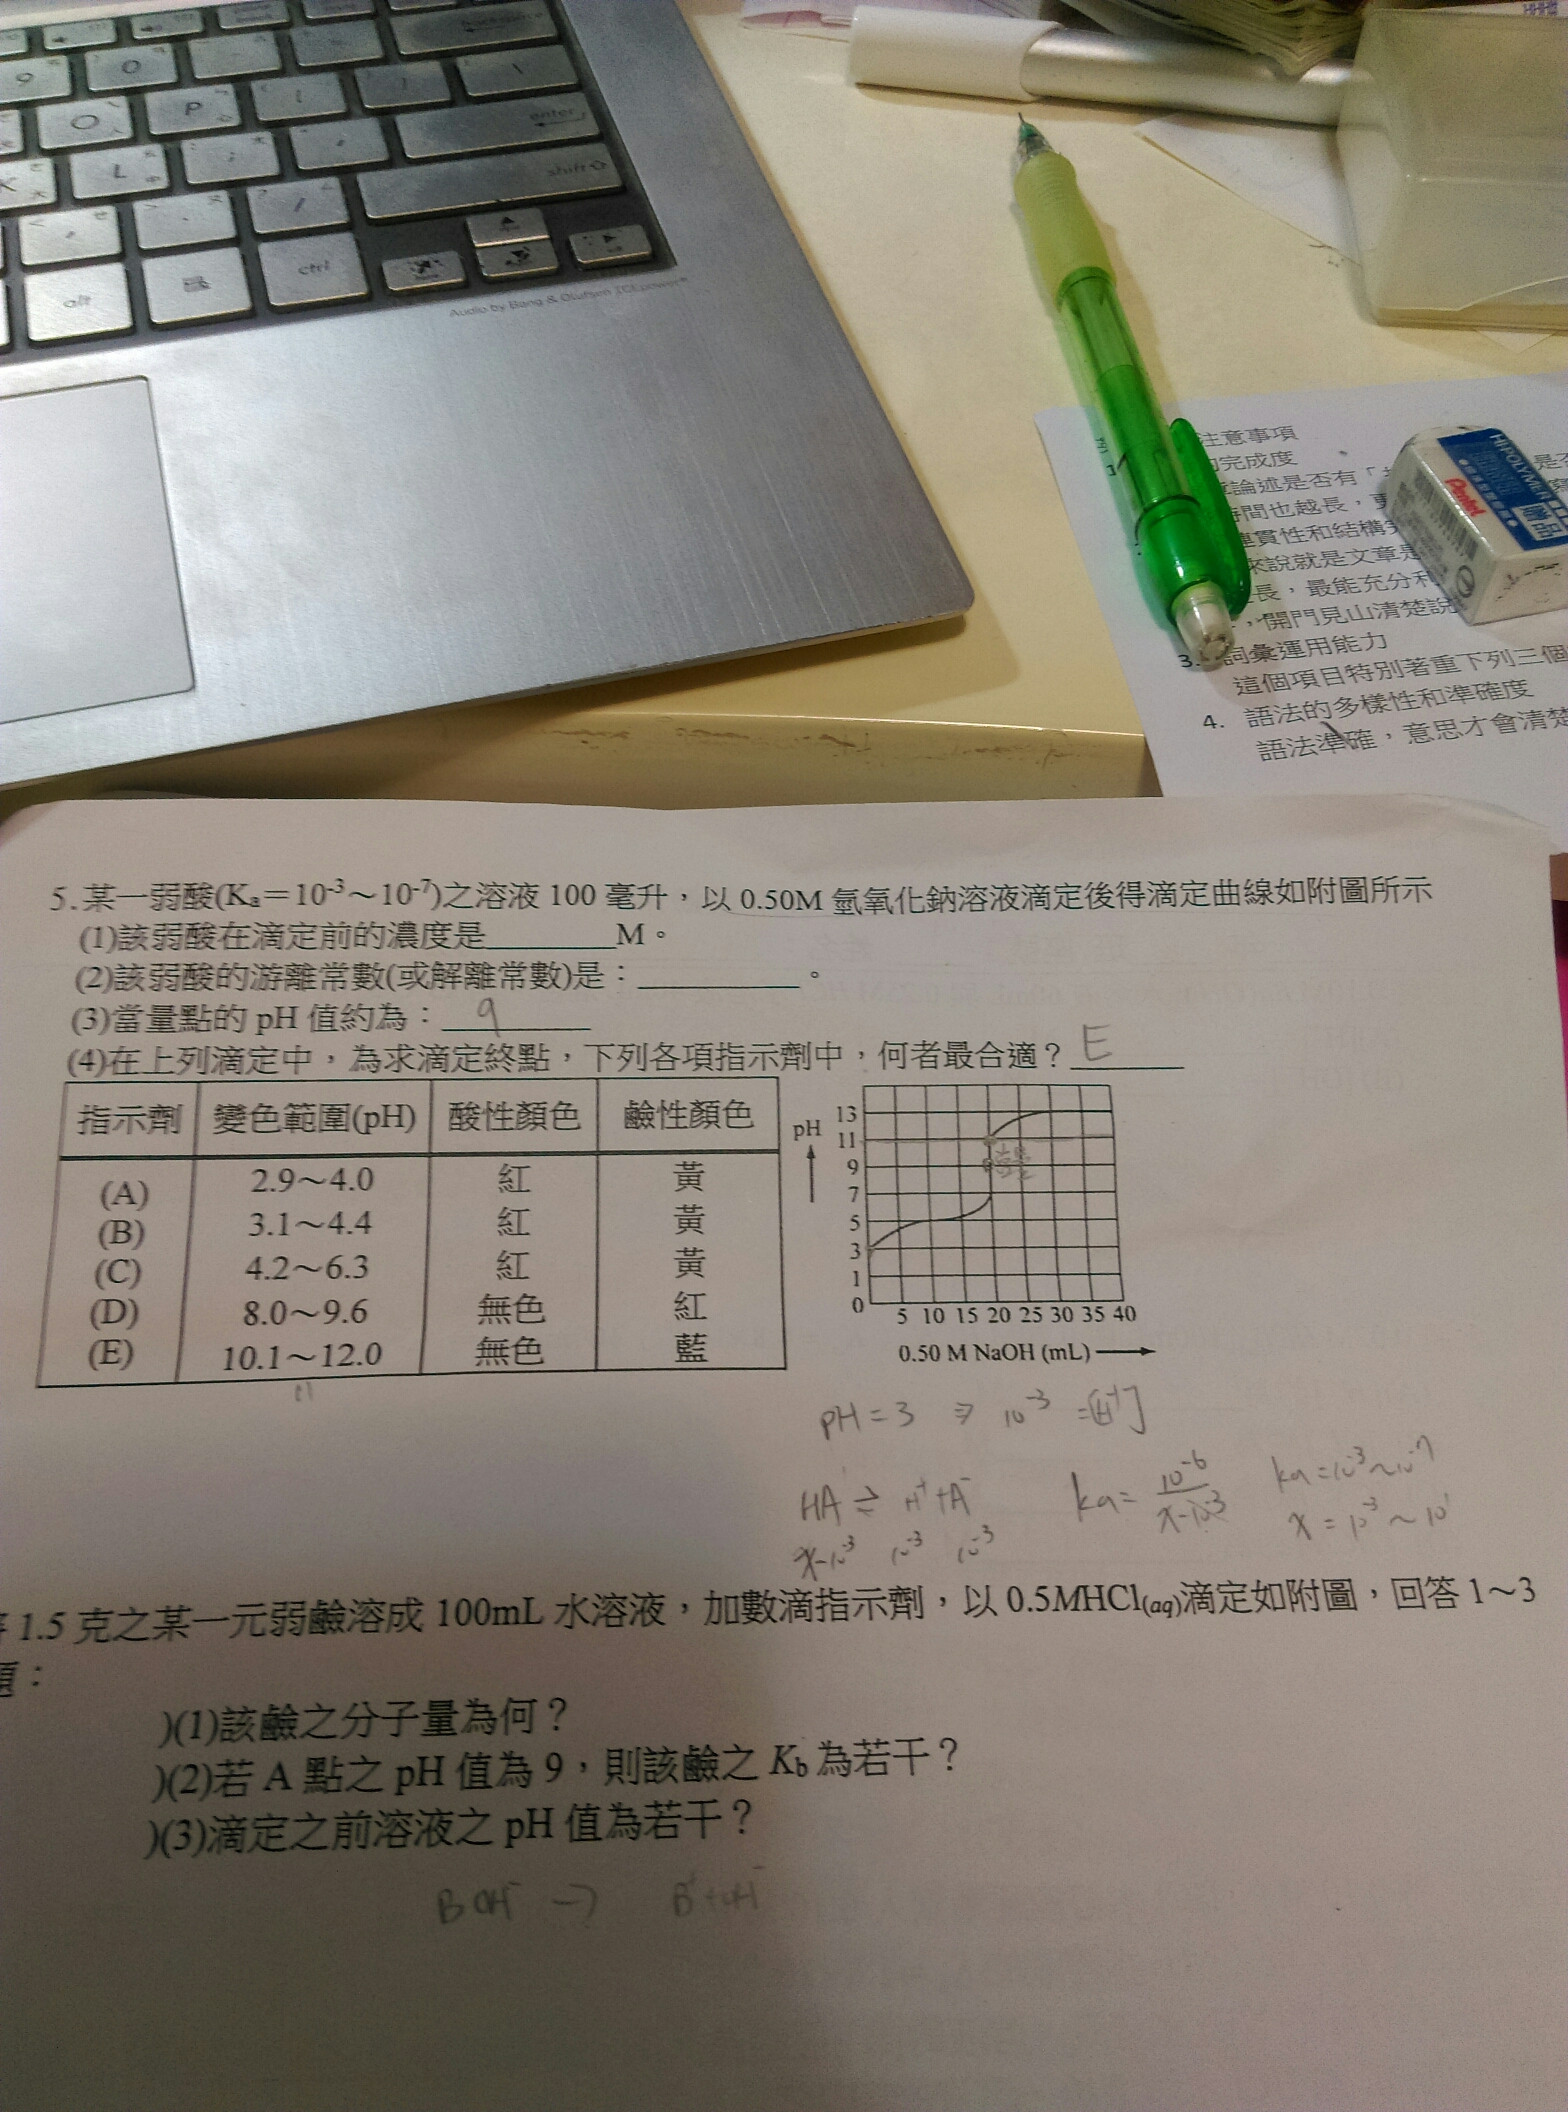 backspace
9
0
O
P
enter
K
L
shift
alt
ctrl
Audio by Bang & Olufsen ICEpower
注意事項
完成度
論述是否有「
時間也越長，
連貫性和結構
來說就是文章是
長，最能充分利
，開門見山清楚說
3. 詞彙運用能力
這個項目特別著重下列三個
4. 語法的多樣性和準確度
語法準確，意思才會清楚
HI-POLYMER
Pentel
贈品
5.某一弱酸(Ka＝10-3～10-7)之溶液 100 毫升，以 0.50M 氫氧化鈉溶液滴定後得滴定曲線如附圖所示
(1)該弱酸在滴定前的濃度是______M。
(2)該弱酸的游離常數(或解離常數)是：________。
(3)當量點的 pH 值約為：9
(4)在上列滴定中，為求滴定終點，下列各項指示劑中，何者最合適？E
指示劑 變色範圍(pH) 酸性顏色 鹼性顏色
(A) 2.9～4.0 紅 黃
(B) 3.1～4.4 紅 黃
(C) 4.2～6.3 紅 黃
(D) 8.0～9.6 無色 紅
(E) 10.1～12.0 無色 藍
11
pH
13
11
9
7
5
3
1
0
5 10 15 20 25 30 35 40
0.50 M NaOH (mL)
pH = 3 ⇒ 10-3 = [H+]
HA ⇌ H+ + A-
x-10-3 10-3 10-3
ka = 10-6 / x-10-3
ka = 10-3 ~ 10-7
x = 10-3 ~ 101
1.5 克之某一元弱鹼溶成 100mL 水溶液，加數滴指示劑，以 0.5MHCl(aq)滴定如附圖，回答 1～3
題：
)(1)該鹼之分子量為何？
)(2)若 A 點之 pH 值為 9，則該鹼之 Kb 為若干？
)(3)滴定之前溶液之 pH 值為若干？
BOH → B+ + OH-